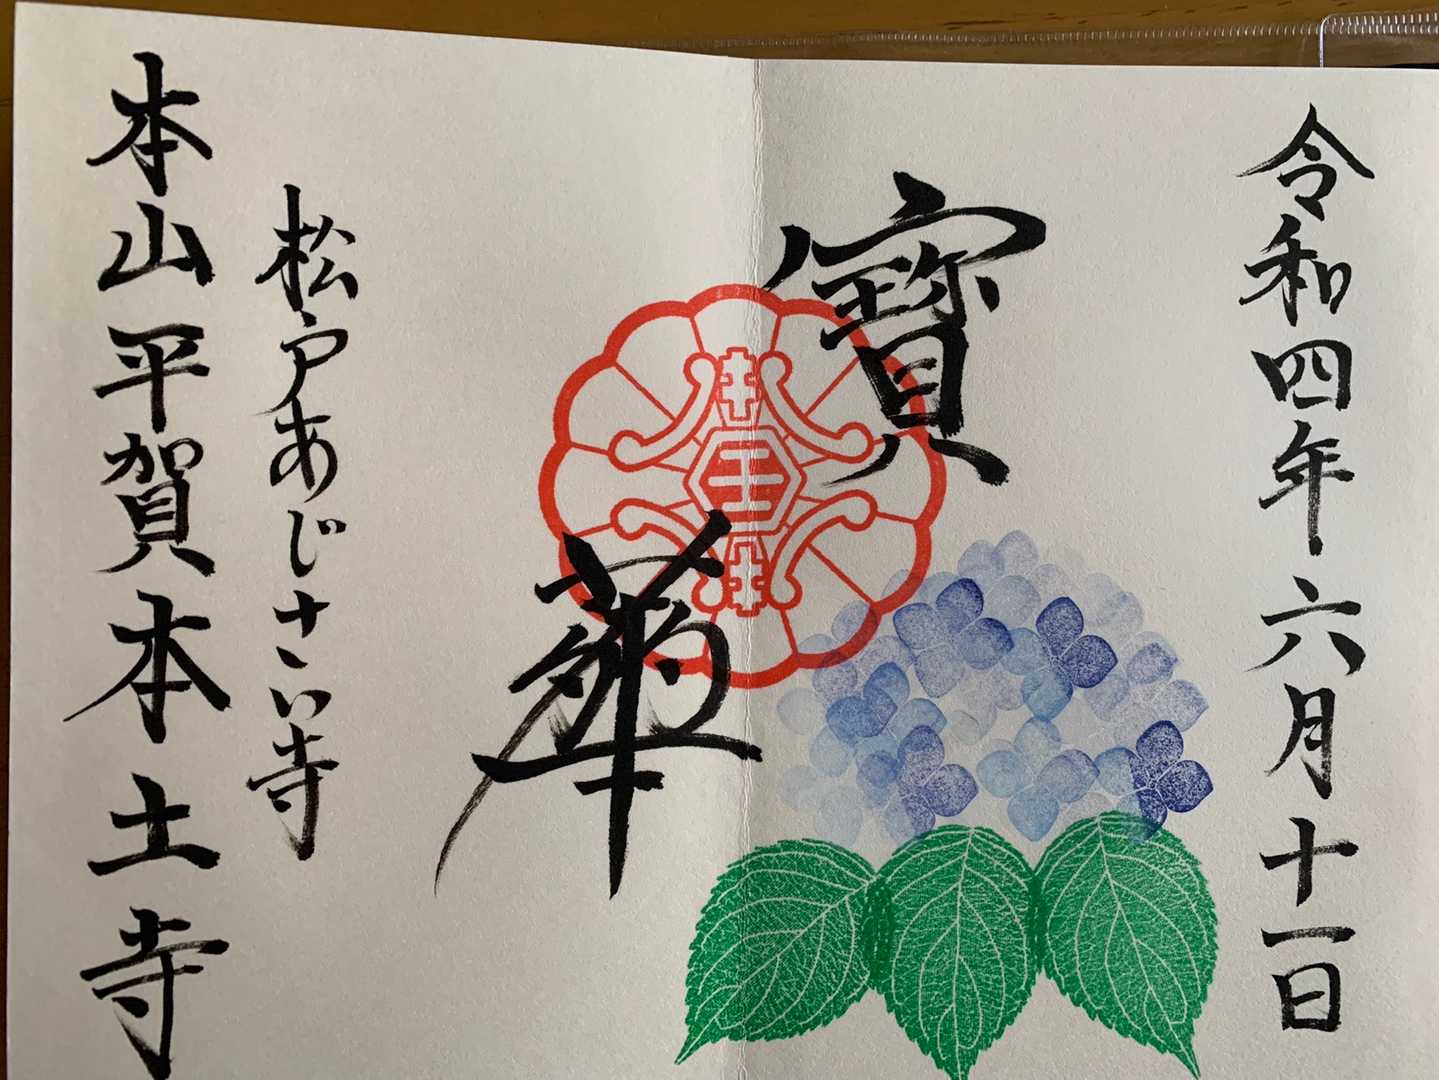 令和四年六月十一日
寶華
松戸あじさい寺
本山平賀本土寺